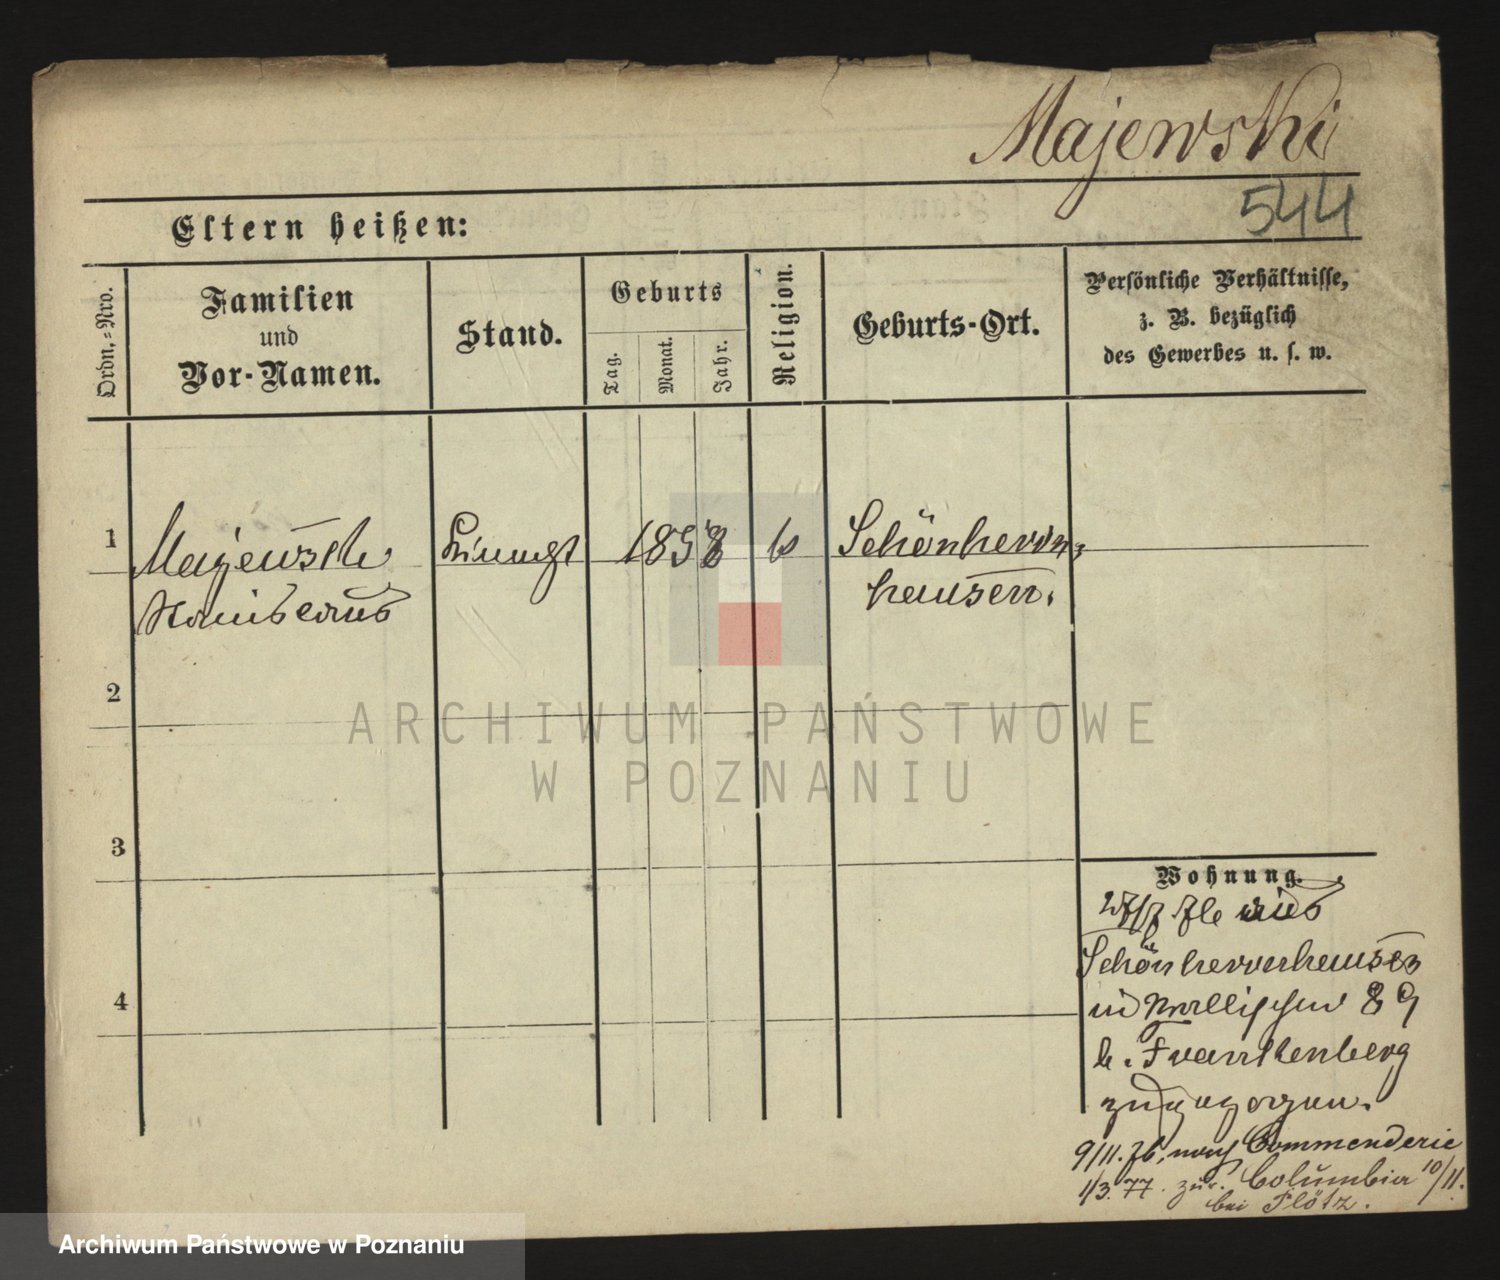 Majewski
544
Eltern heißen:
Ordn.=Nro.
Familien
und
Vor-Namen.
Stand.
Geburts
Tag.
Monat.
Jahr.
Religion.
Geburts-Ort.
Persönliche Verhältnisse,
z. B. bezüglich
des Gewerbes u. s. w.
1
Majewski
Stanislaus
1858
Schönherrn
hausen.
2
3
4
Wohnung.
aus
Schönherrnhausen
in Wallischei 89
b. Frankenberg
zugezogen.
9/11. 76. nach Commenderie
1/3. 77. zur. Columbia 10/11.
bei Plötz.
ARCHIWUM PAŃSTWOWE
W POZNANIU
Archiwum Państwowe w Poznaniu